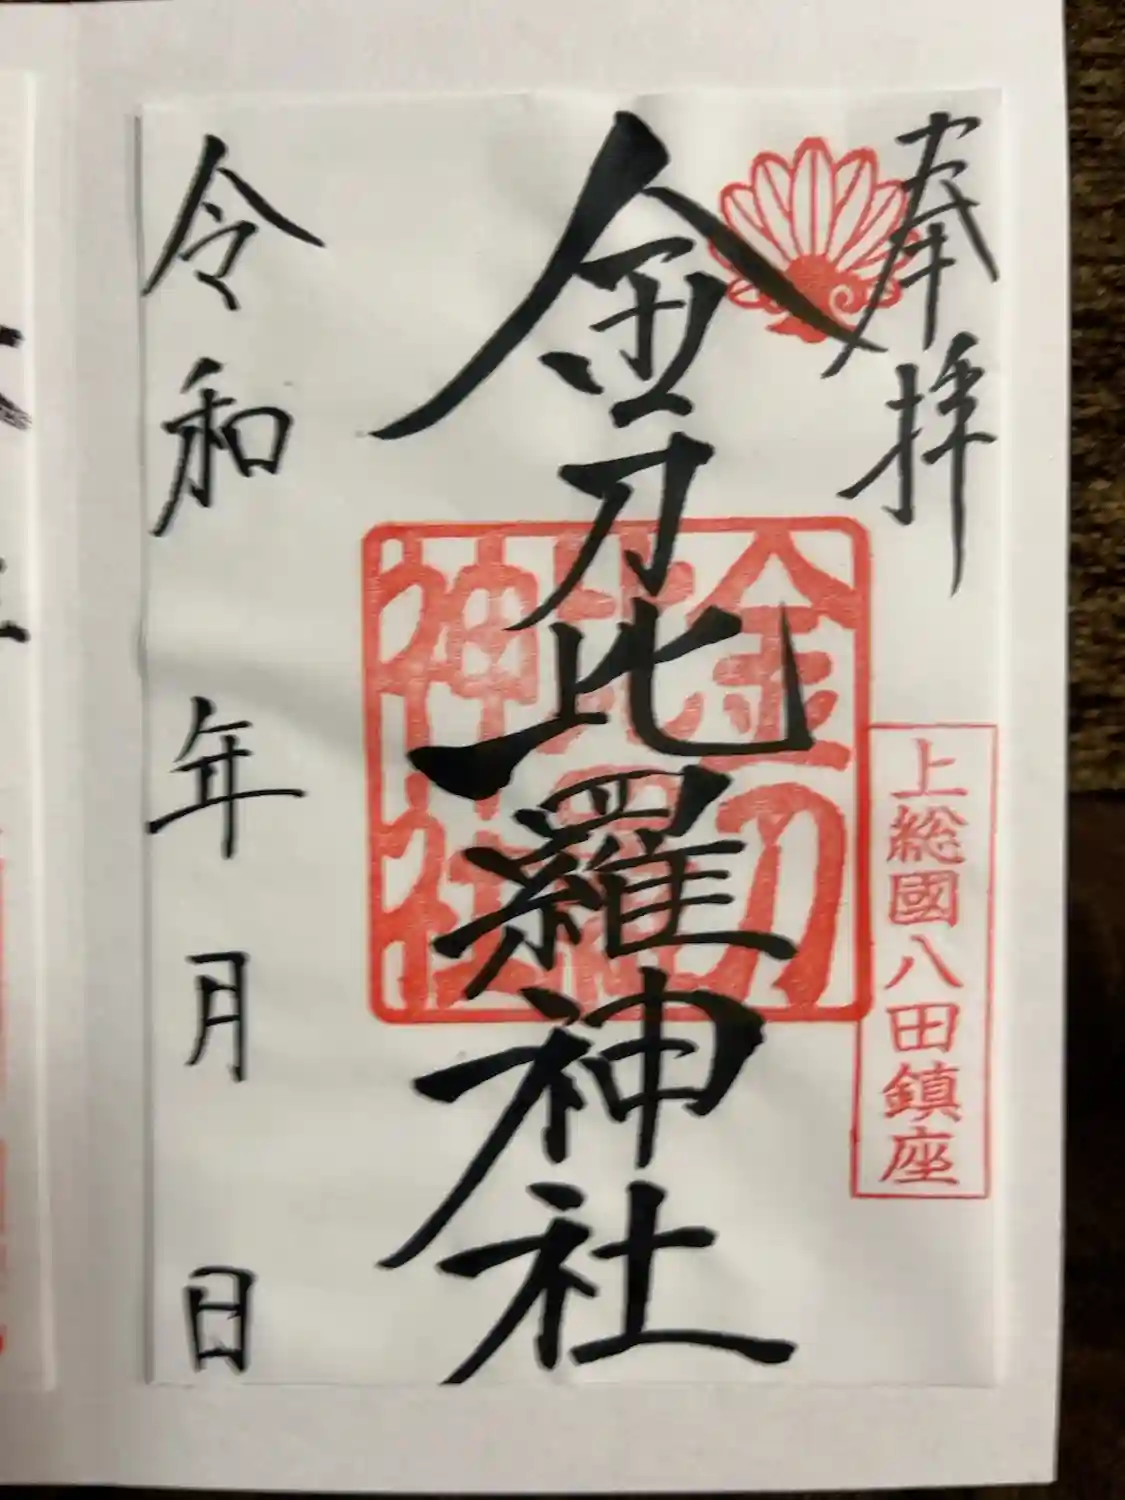 奉拝
上総國八田鎮座
金刀比羅神社
金刀
比羅
神社
令和 年 月 日